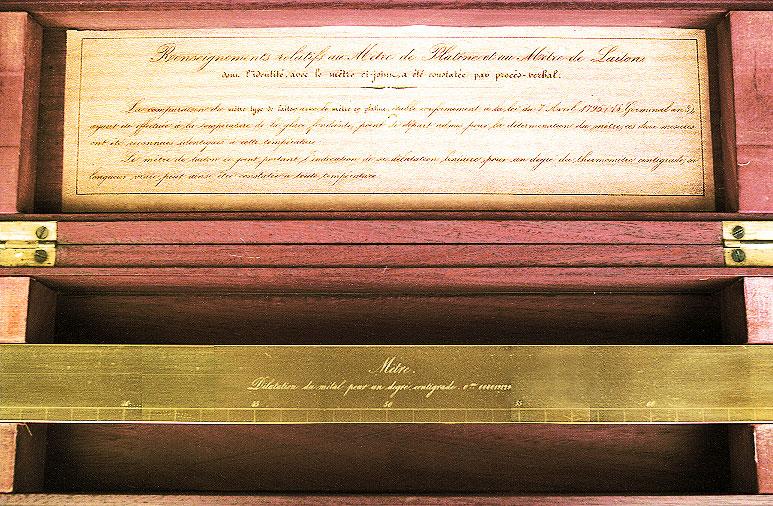 Renseignements relatifs au Mètre de Platine et au Mètre de Laiton
dont l'identité avec le mètre ci-joint, a été constatée par procès-verbal.
La comparaison du mètre type de laiton avec le mètre en platine, établi conformément à la loi du 7 Avril 1795 (18 Germinal an 3,)
ayant été effectuée à la température de la glace fondante, point de départ admis pour la détermination du mètre, ces deux mesures
ont été reconnues identiques à cette température.
Le mètre de laiton ci-joint portant l'indication de sa dilatation linéaire pour un degré du thermomètre centigrade, sa
longueur vraie peut ainsi être constatée à toute température.
Mètre.
Dilatation du métal pour un degré centigrade.
45 50 55 60